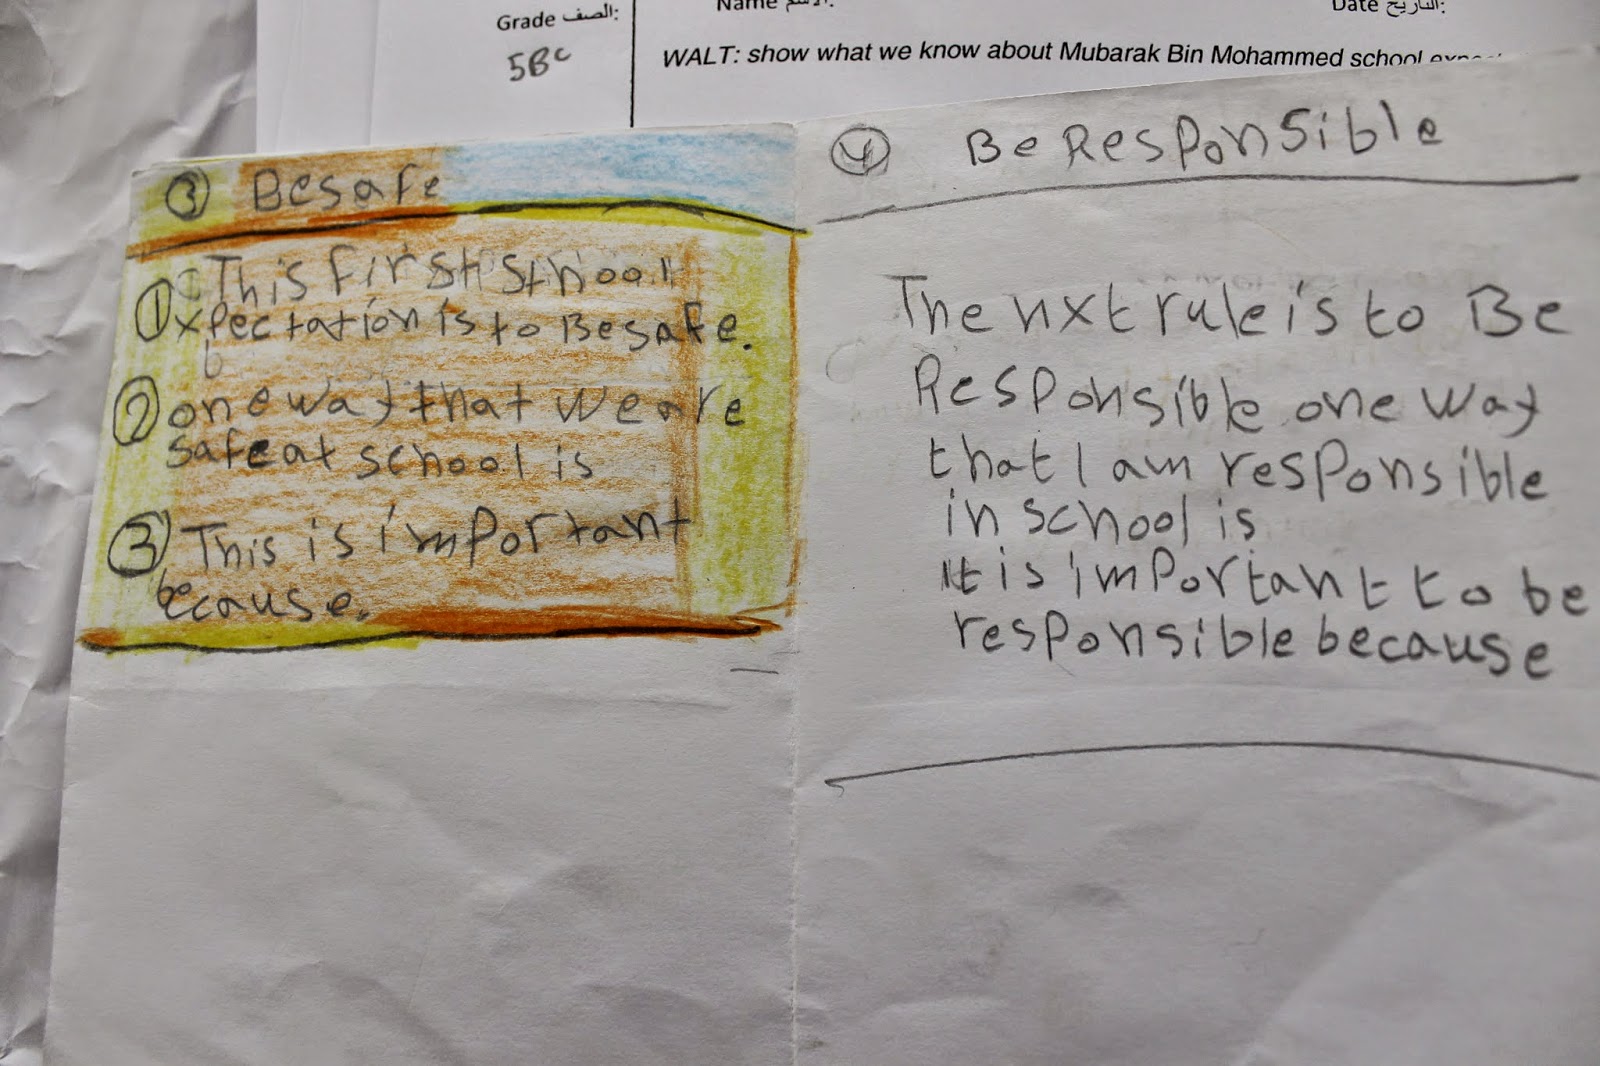 Grade الصف:
Name الاسم:
Date التاريخ:
5BC
WALT: show what we know about Mubarak Bin Mohammed school
③ Be safe
① This first school
xpectation is to Be safe.
b
② one way that we are
safe at school is
③ This is important
because.
④ Be Responsible
The nxt rule is to Be
Responsible one way
that I am responsible
in school is
It is important to be
responsible because